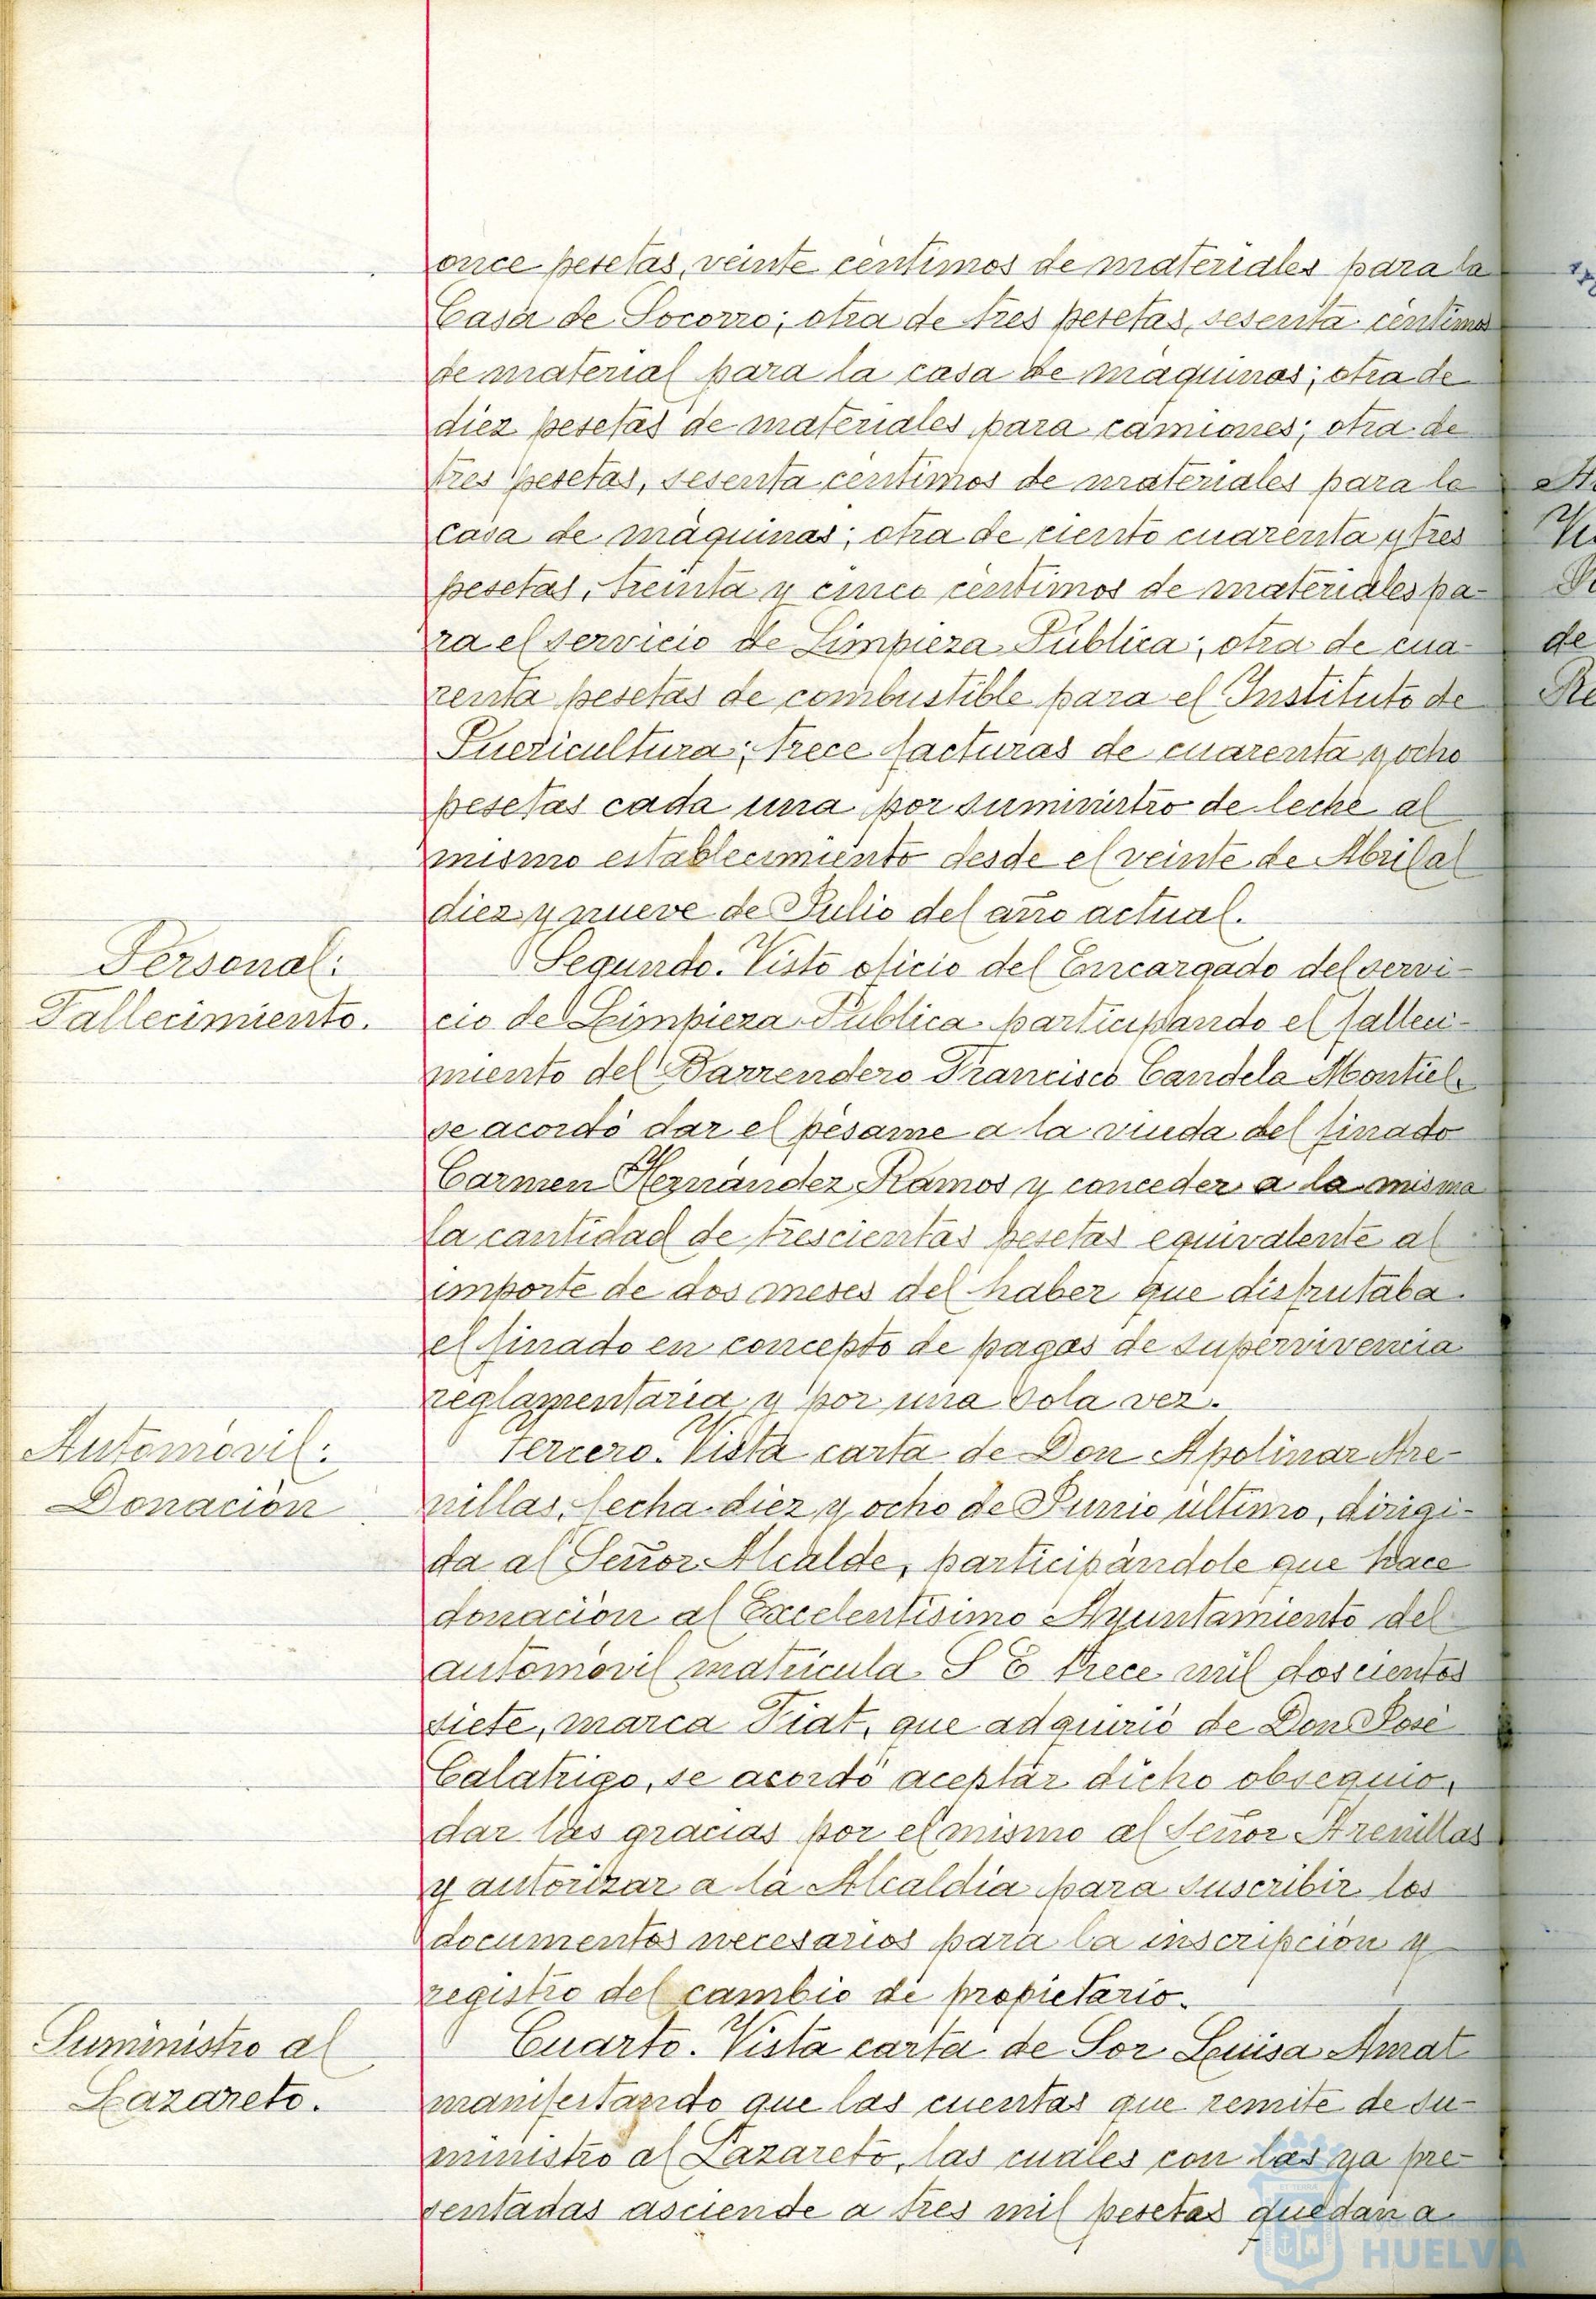 once pesetas, veinte céntimos de materiales para la
Casa de Socorro; otra de tres pesetas, sesenta céntimos
de material para la casa de máquinas; otra de
diez pesetas de materiales para camiones; otra de
tres pesetas, sesenta céntimos de materiales para la
casa de máquinas; otra de ciento cuarenta y tres
pesetas, treinta y cinco céntimos de materiales pa-
ra el servicio de Limpieza Pública; otra de cua-
renta pesetas de combustible para el Instituto de
Puericultura; trece facturas de cuarenta y ocho
pesetas cada una por suministro de leche al
mismo establecimiento desde el veinte de Abril al
diez y nueve de Julio del año actual.
Personal:
Fallecimiento.
Segundo. Visto oficio del Encargado del servi-
cio de Limpieza Pública participando el falleci-
miento del Barrendero Francisco Candela Montiel
se acordó dar el pésame a la viuda del finado
Carmen Hernández Ramos y conceder a la misma
la cantidad de trescientas pesetas equivalente al
importe de dos meses del haber que disfrutaba
el finado en concepto de pagas de supervivencia
reglamentaria y por una sola vez.
Automóvil:
Donación
Tercero. Vista carta de Don Apolinar Are-
nillas, fecha diez y ocho de Junio último, dirigi-
da al Señor Alcalde, participándole que hace
donación al Excelentísimo Ayuntamiento del
automóvil matrícula S E trece mil doscientos
siete, marca Fiat, que adquirió de Don José
Calatrigo, se acordó aceptar dicho obsequio,
dar las gracias por el mismo al Señor Arenillas
y autorizar a la Alcaldía para suscribir los
documentos necesarios para la inscripción y
registro del cambio de propietario.
Suministro al
Lazareto.
Cuarto. Vista carta de Sor Luisa Amat
manifestando que las cuentas que remite de su-
ministro al Lazareto, las cuales con las ya pre-
sentadas asciende a tres mil pesetas quedan a
HUELVA